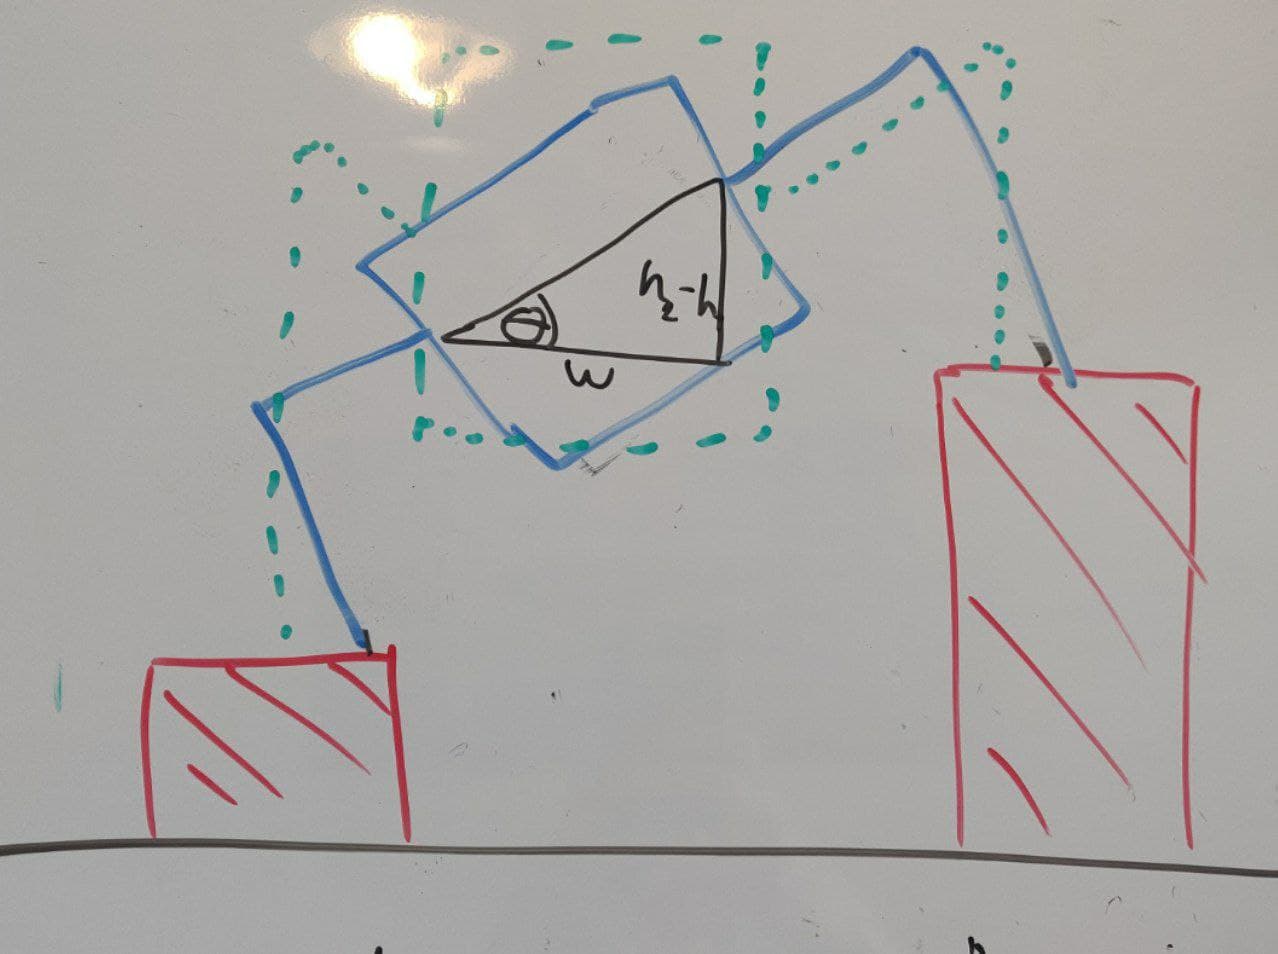 h₂-h
θ
w